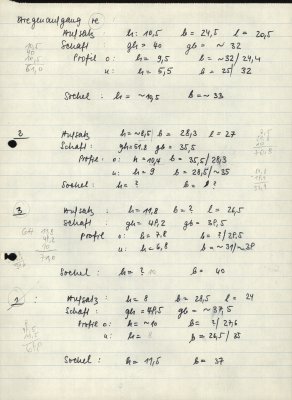 re:
Aufsatz: h: 10,5 b = 24,5 l = 20,5
Schaft: gh = 40 gb = ~ 32
10,5
40
10,5
61,0
Profil o: h = 9,5 b = ~32/24,4
u: h = 5,5 b = 25/32
Sockel: h = ~10,5 b = ~33
2 Aufsatz h = ~8,5 b = 28,3 l = 27
Schaft: gh = 51,8 gb = 35,5
Profil o: h = 10,4 b = 35,5/28,3
u: h = 9 b = 28,5/~35
Sockel: h = ? b = l?
3 Aufsatz: h = 11,8 b = ? l = 26,5
Schaft: gh = 48,2 gb = 38,5
GH 11,8
48,2
10
70,0
Profil o: b = 7,8 b = ?/28,5
u: h = 6,8 b = ~31/~38
Sockel: h = ? b = 40
Aufsatz: h = 8 b = 28,5 l = 24
Schaft: gh = 48,5 gb = ~37,5
Profil o: h = ~10 b = ?/27,6
u: h = 8 b = 26,5/35
Sockel: h = 11,5 b = 37